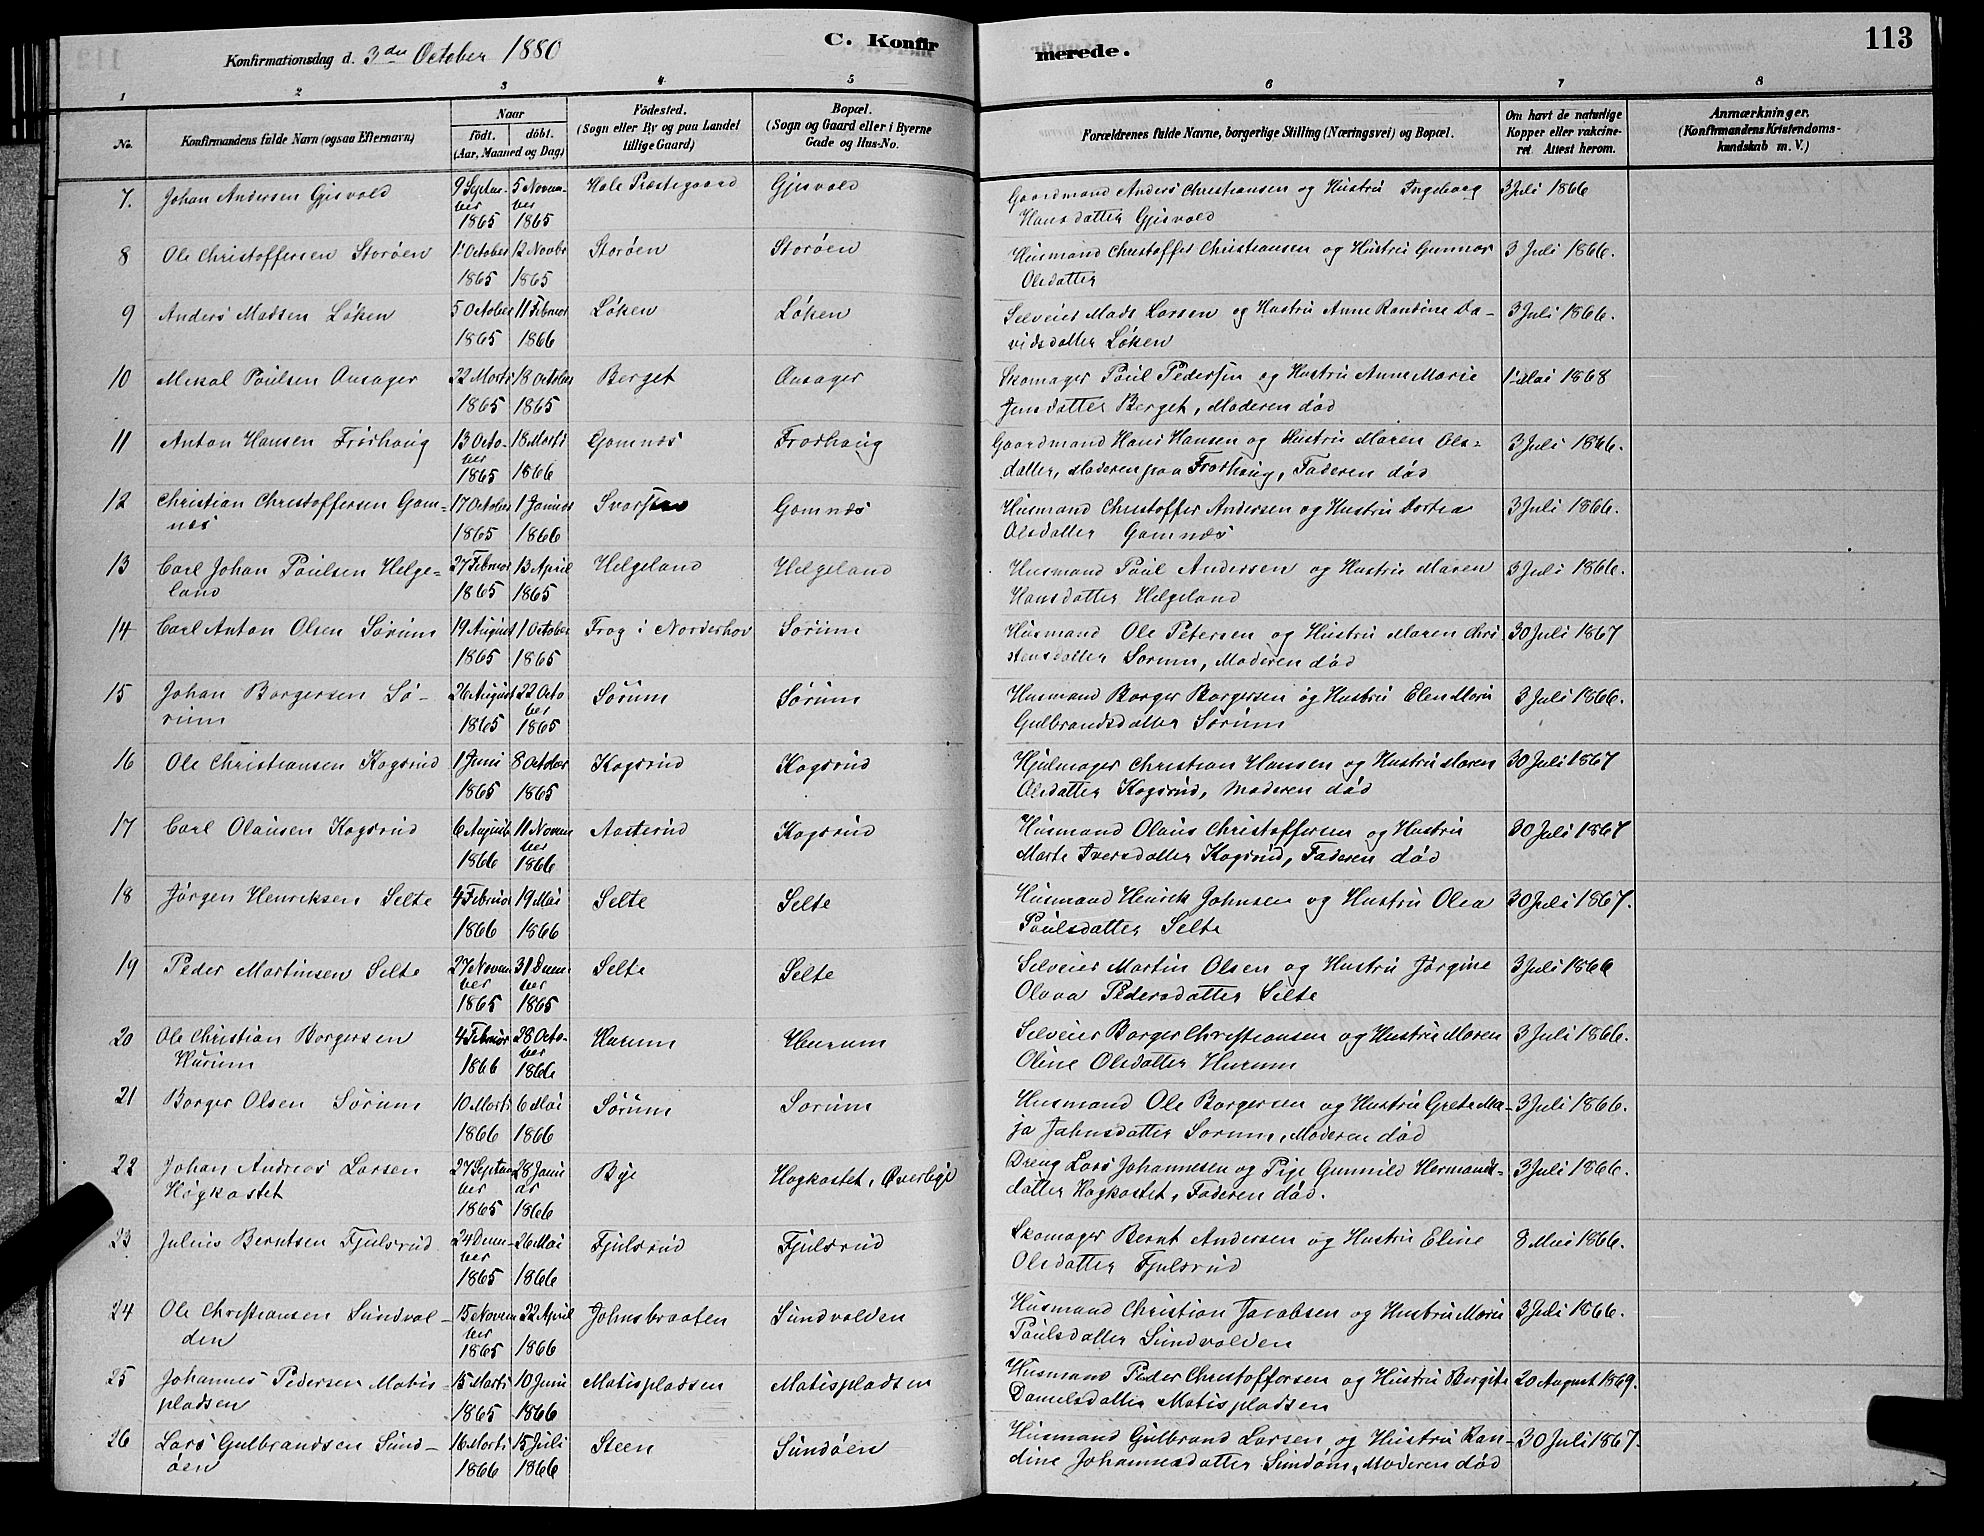 Konfirmationsdag d. 3die October 1880
C. Konfir
merede.
113
1 2 3 4 5 6 7 8
No.
Konfirmandens fulde Navn (ogsaa Efternavn)
Naar
födt. döbt.
(Aar, Maaned og Dag)
Födested.
(Sogn eller By og paa Landet
tillige Gaard)
Bopæl.
(Sogn og Gaard eller i Byerne
Gade og Hus-No.
Forældrenes fulde Navne, borgerlige Stilling (Næringsvei) og Bopæl.
Om havt de naturlige
Kopper eller vakcine-
ret. Attest herom.
Anmærkninger.
(Konfirmandens Kristendoms-
kundskab m. V.)
7. Johan Andersen Gjesvold 9 Septem- 5 Novem- Hole Præstegaard Gjesvold Gaardmand Anders Christiansen og Hustru Ingeborg 3 Juli 1866
ber ber
1865 1865 Hansdatter Gjesvold
8 Ole Christoffersen Storøen 1 October 12 Novbr Storøen Storøen Husmand Christoffer Christiansen og Hustru Gunnor 3 Juli 1866.
1865 1865 Olsdatter
9 Anders Madsen Løken 5 October 11 Februar Løken Løken Selveier Mads Larsen og Hustru Anne Randine Da- 3 Juli 1866.
1865 1866 vidsdatter Løken
10 Mekal Paulsen Aasager 22 Marts 18 October Berget Aasager Skomager Paul Pedersen og Hustru Anne Marie 1 Mai 1868
1865 1865 Jensdatter Berget, Moderen død
11 Anton Hansen Frøshaug 13 Octo- 18 Marts Gomnæs Frøshaug Gaardmand Hans Hansen og Hustru Maren Ols- 3 Juli 1866.
ber
1865 1866 datter, Moderen paa Frøshaug, Faderen død
12 Christian Christoffersen Gom- 17 October 1 Januar Gomnæs Husmand Christoffer Andersen og Hustru Dortea 3 Juli 1866.
næs 1865 1866 Olsdatter Gomnæs
13 Carl Johan Paulsen Helge- 27 Februar 13 April Helgeland Helgeland Husmand Paul Andersen og Hustru Maren 3 Juli 1866.
land 1865 1865 Hansdatter Helgeland
14 Carl Anton Olsen Sørum 19 August 1 October Frog i Norderhov Sørum Husmand Ole Petersen og Hustru Maren Chri- 30 Juli 1867
1865 1865 stensdatter Sørum, Moderen død
15 Johan Borgersen Sø- 26 August 22 Octo Sørum Sørum Husmand Borger Borgersen og Hustru Elen Marie 3 Juli 1866.
rum ber
1865 1865 Gulbrandsdatter Sørum
16 Ole Christiansen Kogsrud 1 Juni 8 October Kogsrud Kogsrud Hjulmager Christian Hansen og Hustru Maren 30 Juli 1867
1865 1865 Olsdatter Kogsrud, Moderen død
17 Carl Olausen Kogsrud 6 August 11 Novem Aasterud Kogsrud Husmand Olaus Christoffersen og Hustru 30 Juli 1867
ber
1866 1866 Marte Iversdatter Kogsrud, Faderen død
18 Jørgen Henriksen Selte 4 Februar 19 Mai Selte Selte Husmand Henrik Johnsen og Hustru Olea 30 Juli 1867.
1866 1866 Paulsdatter Selte
19 Peder Martinsen Selte 27 Novem 31 Decem Selte Selte Selveier Martin Olsen og Hustru Jørgine 3 Juli 1866
ber ber
1865 1865 Olava Pedersdatter Selte
20 Ole Christian Borgersen 4 Februar 28 Octo- Hurum Hurum Selveier Borger Christiansen og Hustru Maren 3 Juli 1866.
Hurum ber
1866 1866 Oline Olsdatter Hurum
21 Borger Olsen Sørum 10 Marts 6 Mai Sørum Sørum Husmand Ole Borgersen og Hustru Grete Ma- 3 Juli 1866.
1866 1866 ja Jahnsdatter Sørum, Moderen død
22 Johan Andreas Larsen 27 Septem 28 Janu Bye Høgkastet, Øverbye Dreng Lars Johannesen og Pige Gunnild Hermands- 3 Juli 1866.
Høgkastet ber ar
1865 1866 datter Høgkastet, Faderen død.
23 Julius Berntsen Fjulsrud 24 Decem- 26 Mai Fjulsrud Fjulsrud Skomager Bernt Andersen og Hustru Eline 8 Mai 1866.
ber
1865 1866 Olsdatter Fjulsrud
24 Ole Christiansen Sundvol- 15 Novem 22 April Johnsbraaten Sundvolden Husmand Christian Jacobsen og Hustru Marie 3 Juli 1866.
den ber
1865 1866 Paulsdatter Sundvolden
25 Johannes Pedersen Matis- 15 Marts 10 Juni Matispladsen Matispladsen Husmand Peder Christoffersen og Hustru Bergite 20 August 1869.
pladsen 1865 1866 Danielsdatter Matispladsen
26 Lars Gulbrandsen Sund- 16 Marts 15 Juli Steen Sundøen Husmand Gulbrand Larsen og Hustru Ran- 30 Juli 1867.
øen 1866 1866 dine Johannesdatter Sundøen, Moderen død